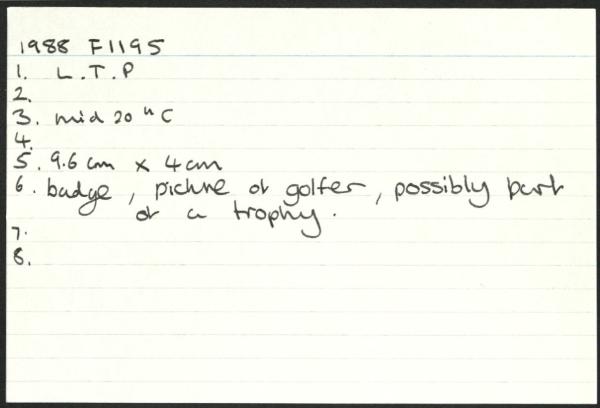 1988 F1195
1. L.T.P
2.
3. mid 20th C
4.
5. 9.6 cm x 4cm
6. badge, picture of golfer, possibly part
of a trophy.
7.
8.